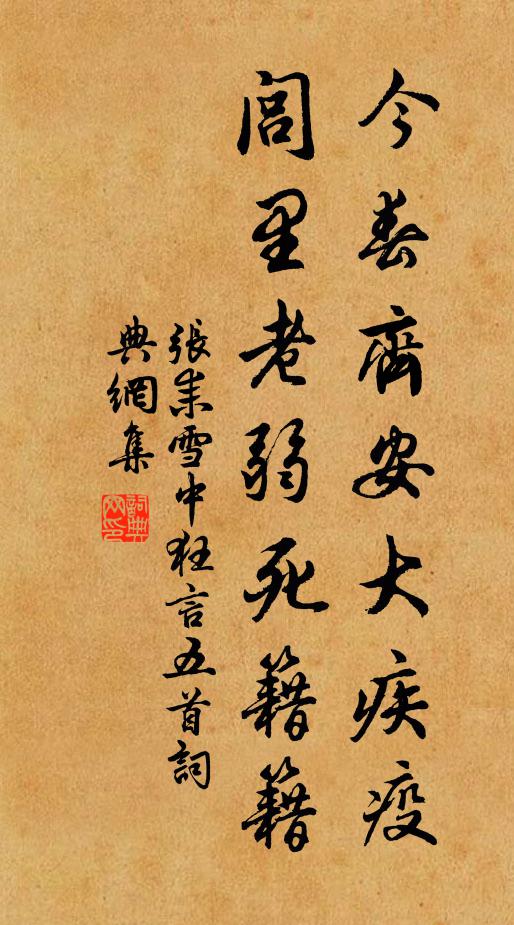 今春齊安大疾疫
閭里老弱死籍籍
張耒雪中狂言五首詞
典網集
詞典
網印